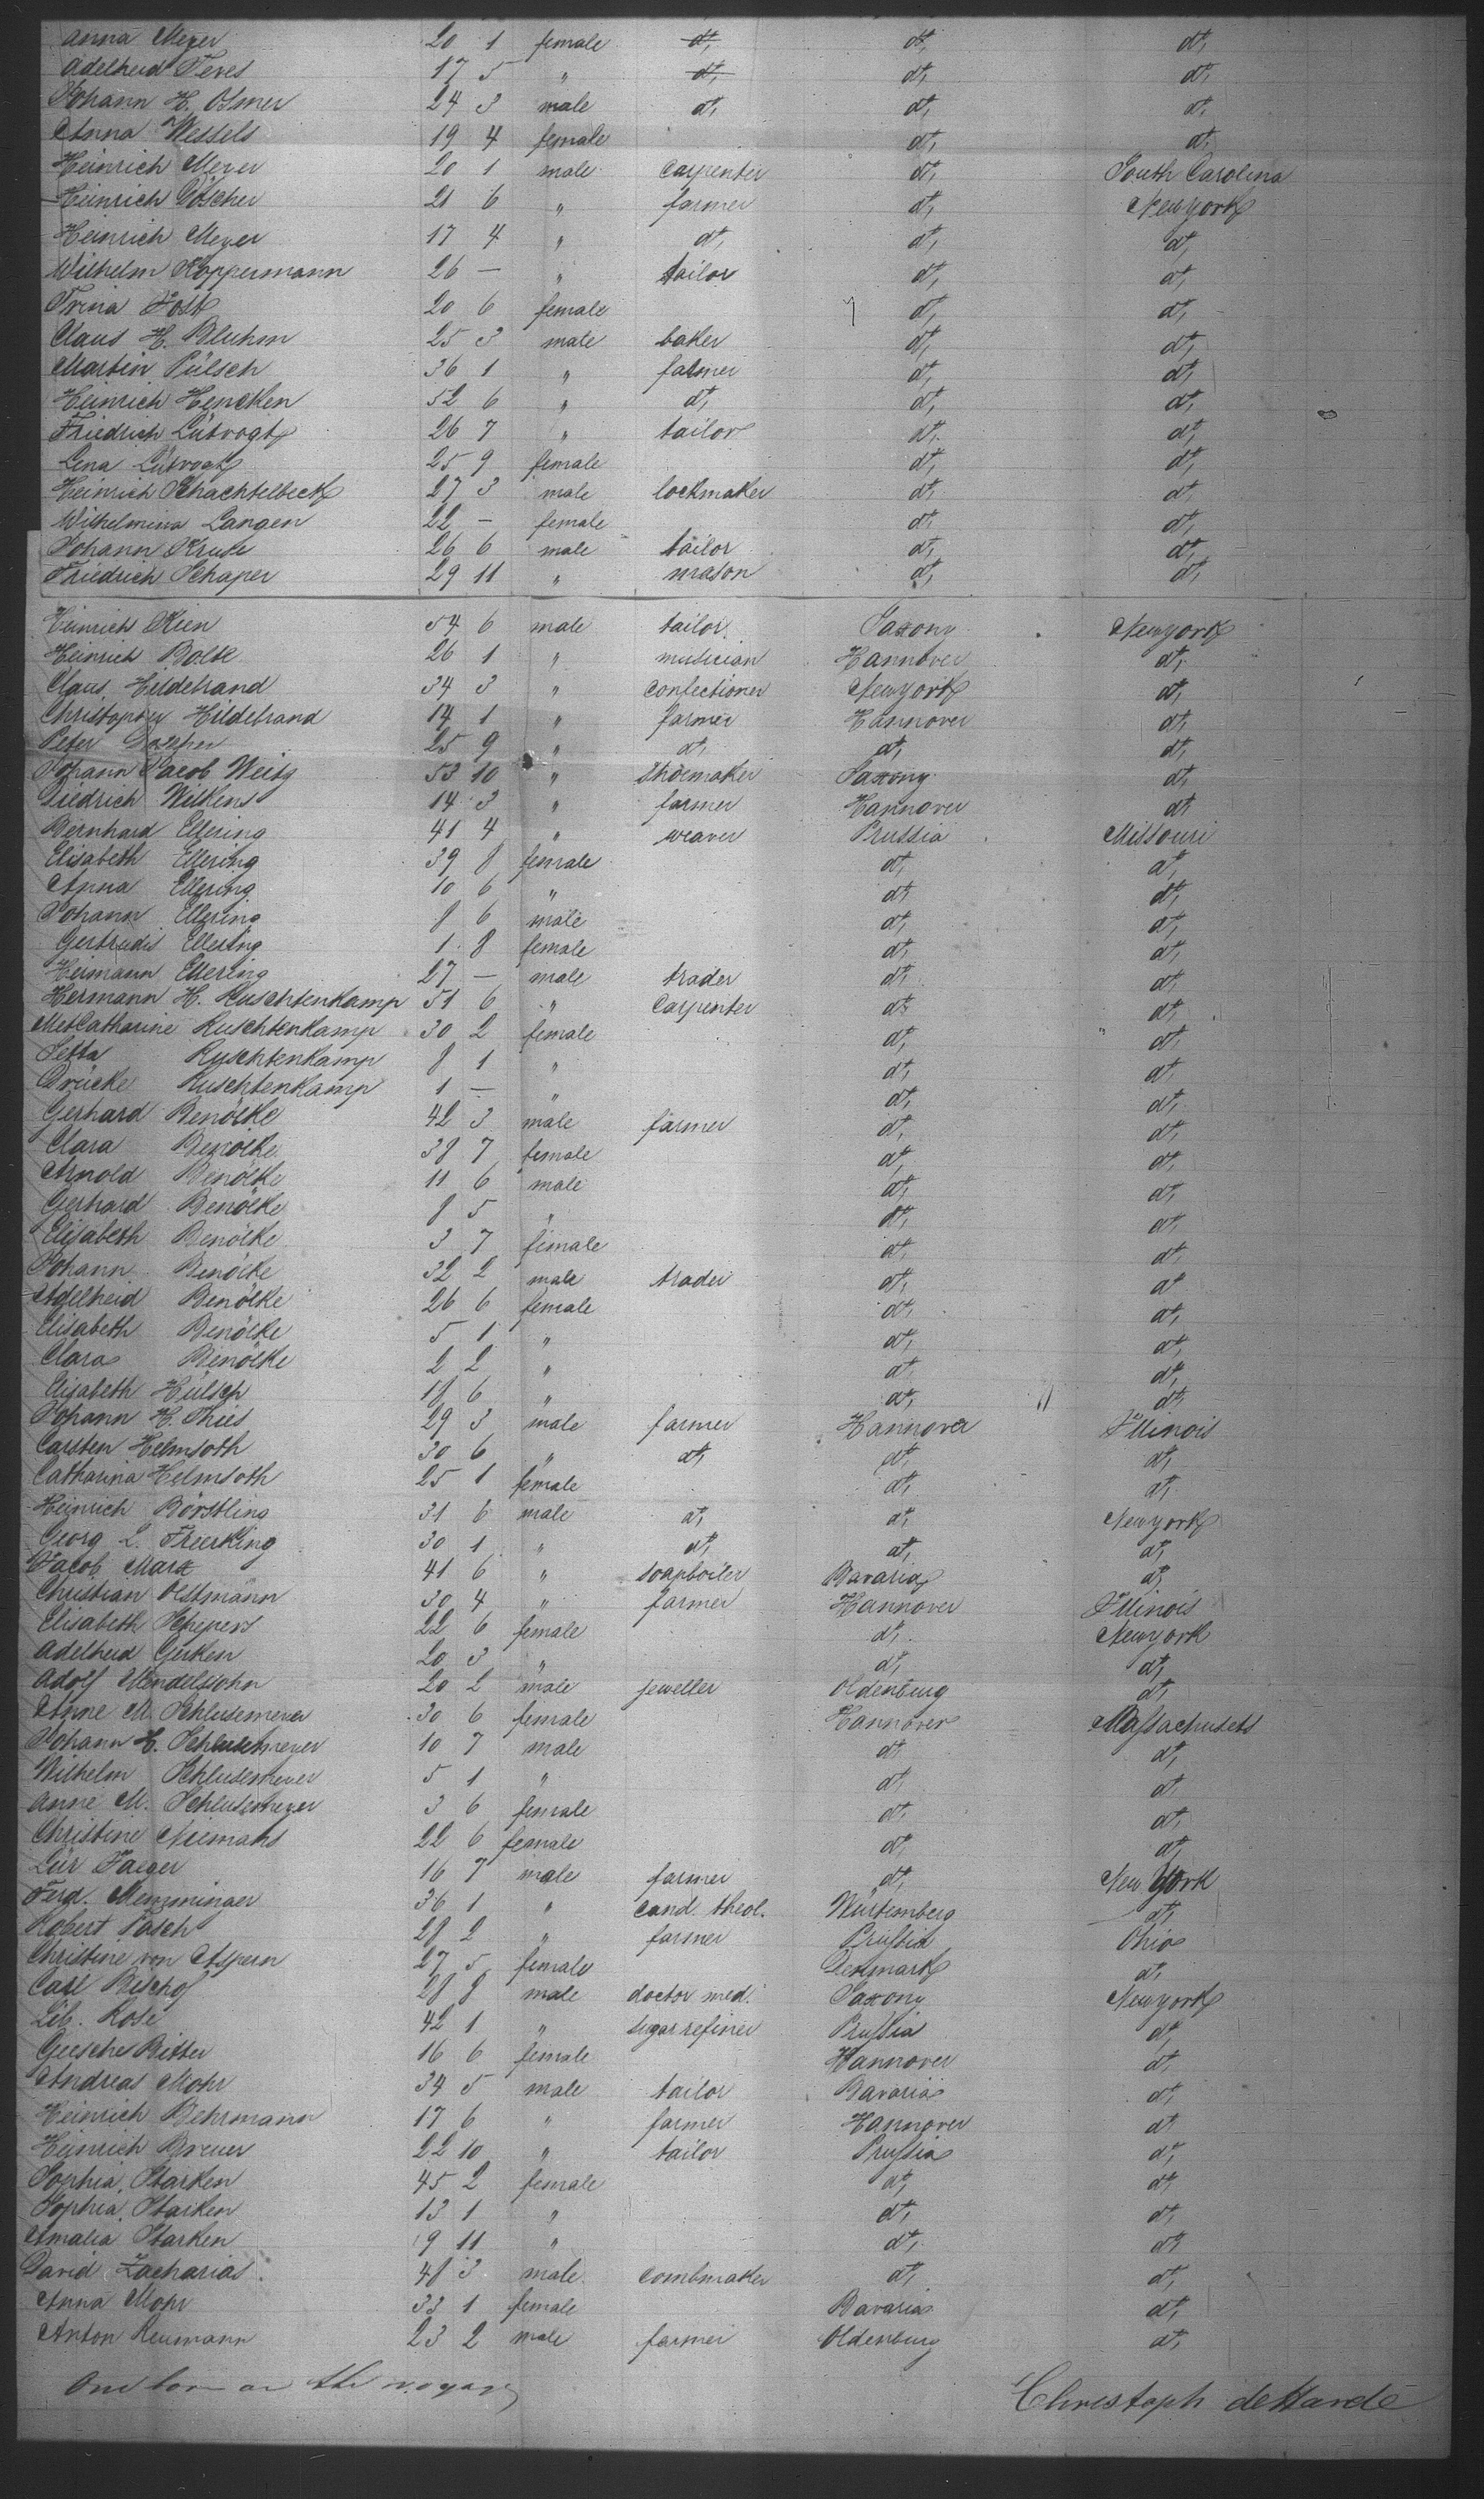 Anna Meyer 20 1 female dt, dt, dt,
Adelheid Feves 17 5 " dt, dt, dt,
Johann H. Osmer 24 3 male dt, dt, dt,
Anna Wessels 19 4 female dt, dt,
Heinrich Meyer 20 1 male carpenter dt, South Carolina
Heinrich Döscher 21 6 " farmer dt, New york
Heinrich Meyer 17 4 " dt, dt, dt,
Wilhelm Koppermann 26 — " tailor dt, dt,
Trina Jost 20 6 female dt, dt,
Claus H. Bluhm 25 3 male baker dt, dt,
Martin Pülsch 36 1 " farmer dt, dt,
Heinrich Hencken 52 6 " dt, dt, dt,
Friedrich Lütvogt 26 7 " tailor dt, dt,
Lena Lütvogt 25 9 female dt, dt,
Heinrich Schachtelbeck 27 3 male lockmaker dt, dt,
Wilhelmina Langen 22 — female dt, dt,
Johann Kruse 26 6 male tailor dt, dt,
Friedrich Schaper 29 11 " mason dt, dt,
Heinrich Kien 54 6 male tailor Saxony New york
Heinrich Bolte 26 1 " musician Hannover dt,
Claus Hildebrand 34 3 " confectioner New york dt,
Christopher Hildebrand 14 1 " farmer Hannover dt,
Peter 25 9 " dt, dt, dt,
Johann Jacob Weitz 53 10 " shoemaker Saxony dt,
Diedrich Wilkens 14 3 " farmer Hannover dt,
Bernhard Ellering 41 4 " weaver Prussia Missouri
Elisabeth Ellering 39 8 female dt, dt,
Anna Ellering 10 6 " dt, dt,
Johann Ellering 8 6 male dt, dt,
Gertrudis Ellering 1 8 female dt, dt,
Hermann Ellering 27 — male trader dt, dt,
Hermann H. Kuschtenkamp 51 6 " carpenter dt, dt,
MetCatharine Kuschtenkamp 30 2 female dt, dt,
Jetta Kuschtenkamp 8 1 " dt, dt,
Drücke Kuschtenkamp 1 — " dt, dt,
Gerhard Benölke 42 3 male farmer dt, dt,
Clara Benölke 38 7 female dt, dt,
Arnold Benölke 11 6 male dt, dt,
Gerhard Benölke 8 5 " dt, dt,
Elisabeth Benölke 3 7 female dt, dt,
Johann Benölke 32 2 male trader dt, dt
Adelheid Benölke 26 6 female dt, dt,
Elisabeth Benölke 5 1 " dt, dt,
Clara Benölke 2 2 " dt, dt,
Elisabeth Hülsch 18 6 " dt, dt,
Johann H. Thies 29 3 male farmer Hannover Illinois
Carsten Helmsoth 30 6 " dt, dt, dt,
Catharina Helmsoth 25 1 female dt, dt,
Heinrich Börstling 31 6 male dt, dt, New york
Georg L. Freerking 30 1 " dt, dt, dt,
Jacob Marx 41 6 " soapboiler Bavaria dt,
Christian Oestmann 30 4 " farmer Hannover Illinois
Elisabeth Schepers 22 6 female dt, New york
Adelheid Gerken 20 3 " dt, dt,
Adolf Mendelsohn 20 2 male jeweller Oldenburg dt,
Anne M. Schlusemeyer 30 6 female Hannover Massachusets
Johann H. Schlusemeyer 10 7 male dt, dt,
Wilhelm Schlusemeyer 5 1 " dt, dt,
Anne M. Schlusemeyer 3 6 female dt, dt,
Christine Niemans 22 6 female dt, dt,
Lür Jaeger 16 7 male farmer dt, New York
Ferd. Memminger 36 1 " cand. theol. Würtemberg dt,
Robert Pasch 28 2 " farmer Prussia Ohio
Christine von Aspern 27 5 female Denmark dt,
Carl Bischof 28 8 male doctor med. Saxony New york
Lib. Rose 42 1 " sugar refiner Prussia dt,
Geesche Ritter 16 6 female Hannover dt,
Andreas Mohr 34 5 male tailor Bavaria dt,
Heinrich Behrmann 17 6 " farmer Hannover dt
Heinrich Breuer 22 10 " tailor Prussia dt,
Sophia Starken 45 2 female dt, dt,
Sophia Starken 13 1 " dt, dt,
Amalia Starken 9 11 " dt, dt,
David Zacharias 48 3 male combmaker dt, dt,
Anna Mohr 33 1 female Bavaria dt,
Anton Reumann 23 2 male farmer Oldenburg dt,
One born on the voyage
Christoph deHarde